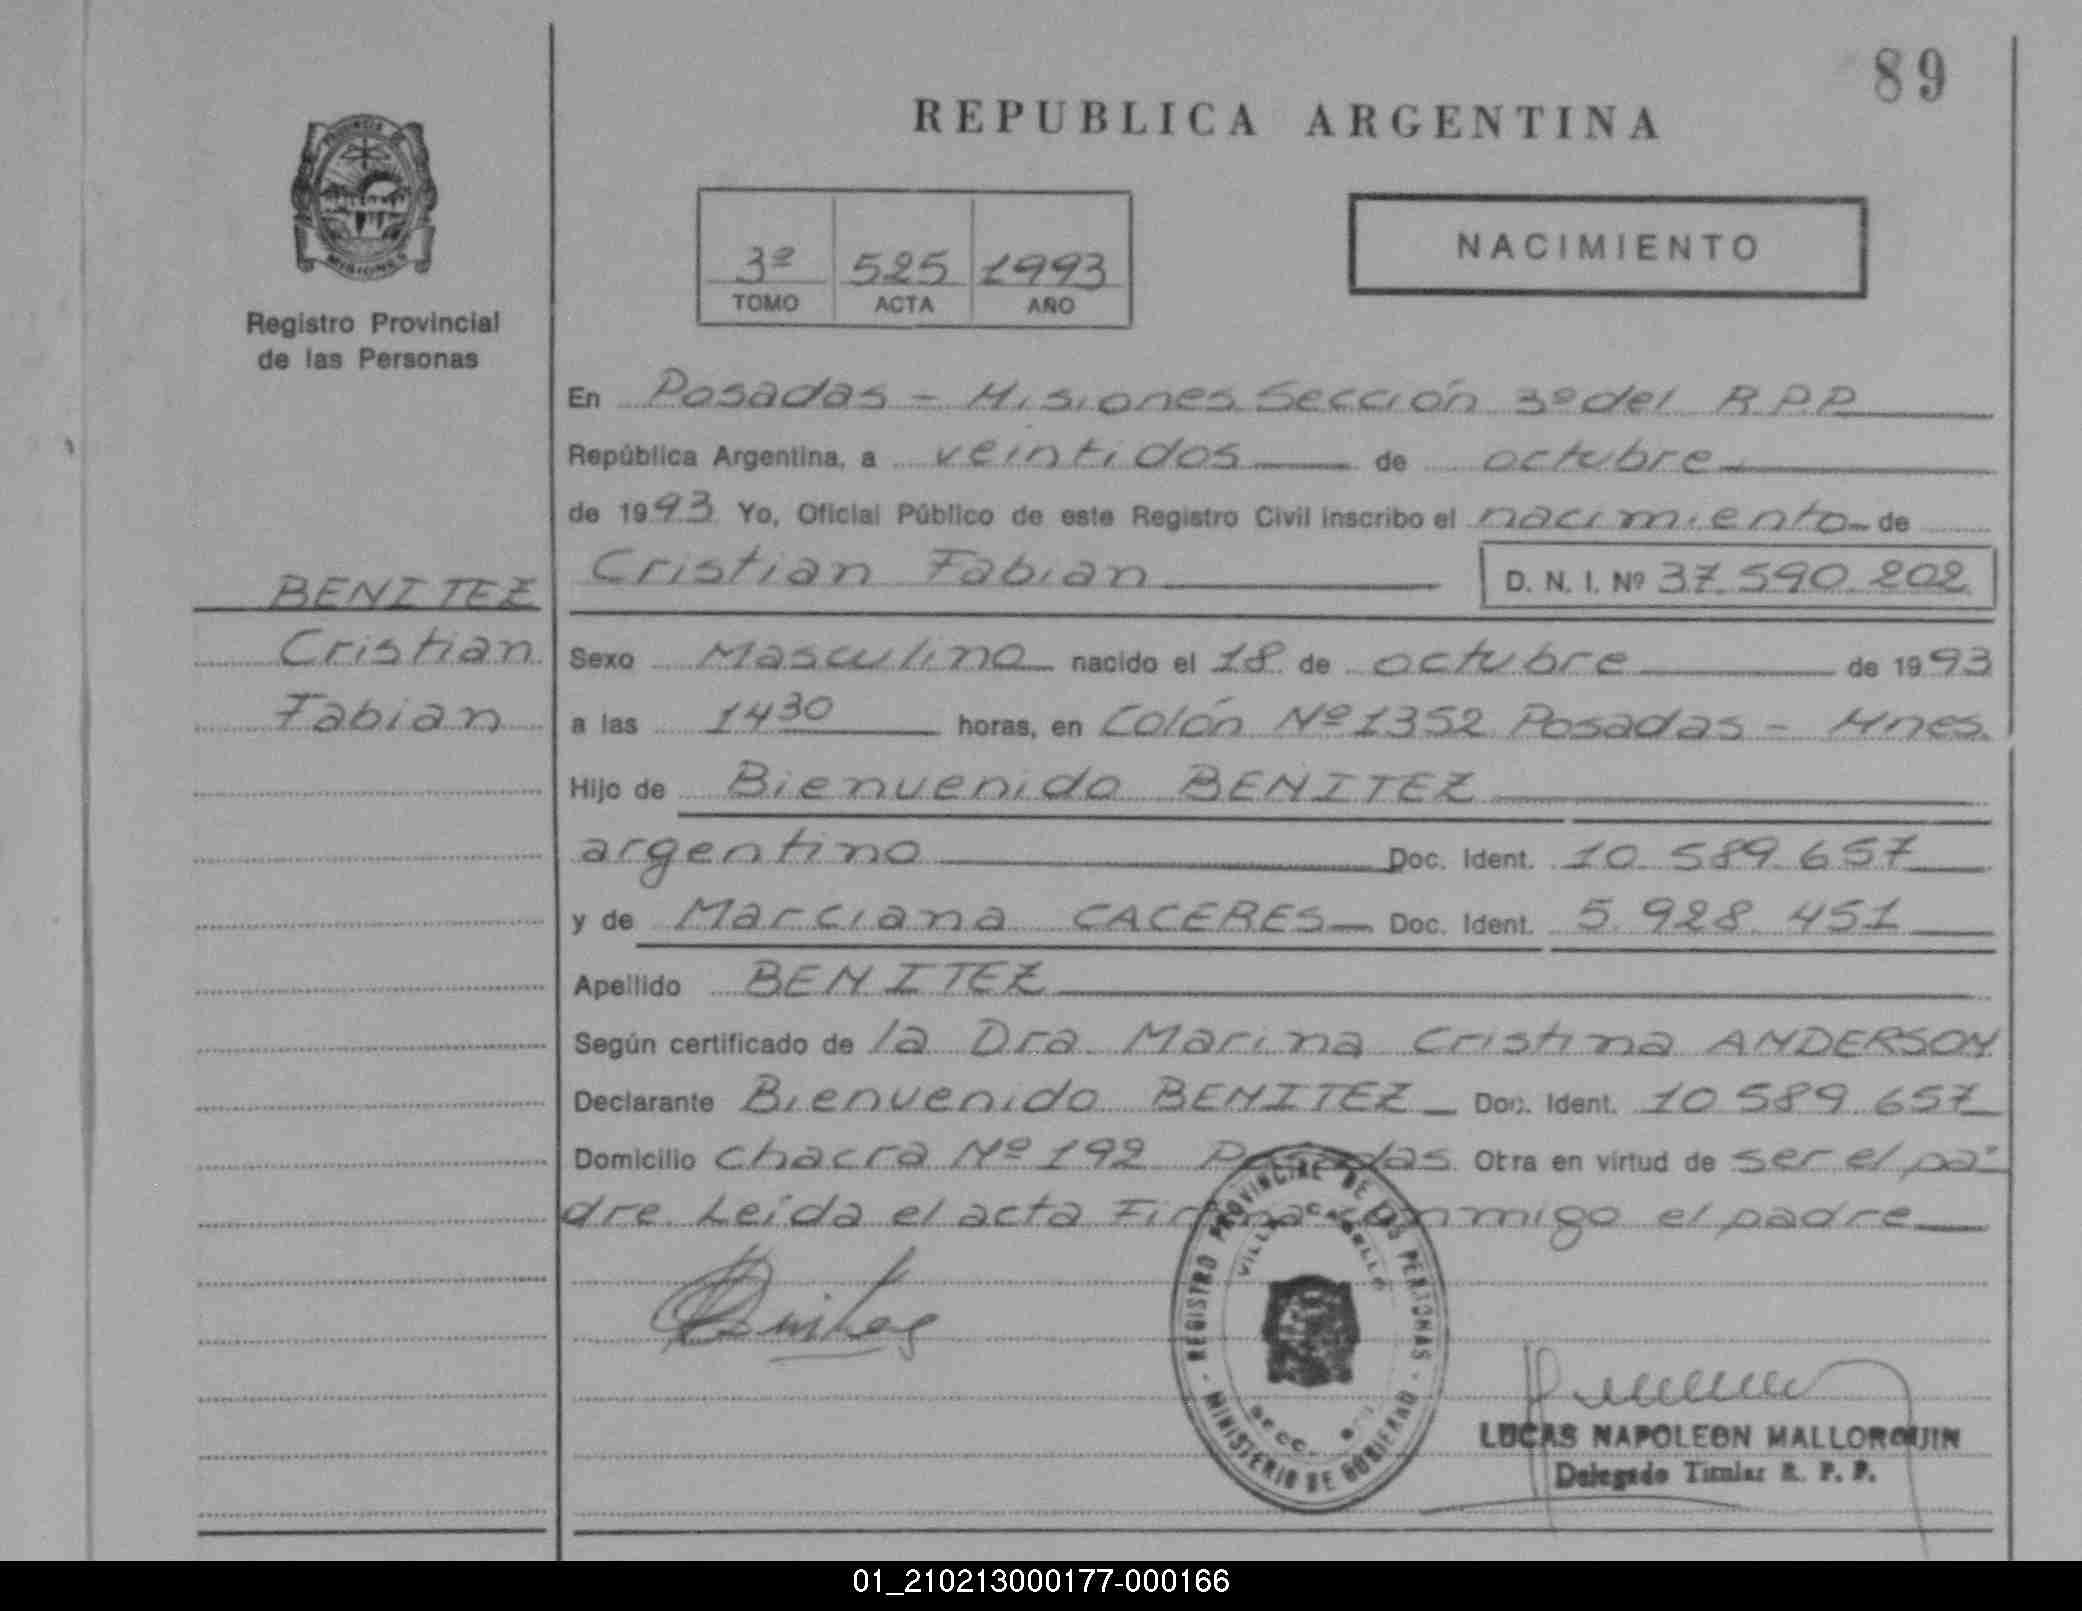 89
REPUBLICA ARGENTINA
PROVINCIA
MISIONES
Registro Provincial
de las Personas
3º 525 1993
TOMO ACTA AÑO
NACIMIENTO
En Posadas - Misiones Sección 3º del R P P
República Argentina, a veintidos de octubre
de 1993 Yo, Oficial Público de este Registro Civil inscribo el nacimiento de
Cristian Fabian D. N. I. Nº 37.590.202
BENITEZ
Cristian
Fabian
Sexo Masculino nacido el 18 de octubre de 1993
a las 14 30 horas, en Colón Nº 1352 Posadas - Mnes.
Hijo de Bienvenido BENITEZ
argentino Doc. Ident. 10.589.657
y de Marciana CACERES Doc. Ident. 5.928.451
Apellido BENITEZ
Según certificado de la Dra Marina Cristina ANDERSON
Declarante Bienvenido BENITEZ Doc. Ident. 10 589.657
Domicilio Chacra Nº 192 Posadas Obra en virtud de ser el pa-
dre Leída el acta Firma conmigo el padre
REGISTRO PROVINCIAL DE LAS PERSONAS
MINISTERIO DE GOBIERNO
SECC.
LUCAS NAPOLEON MALLORQUIN
Delegado Titular R. P. P.
01_210213000177-000166